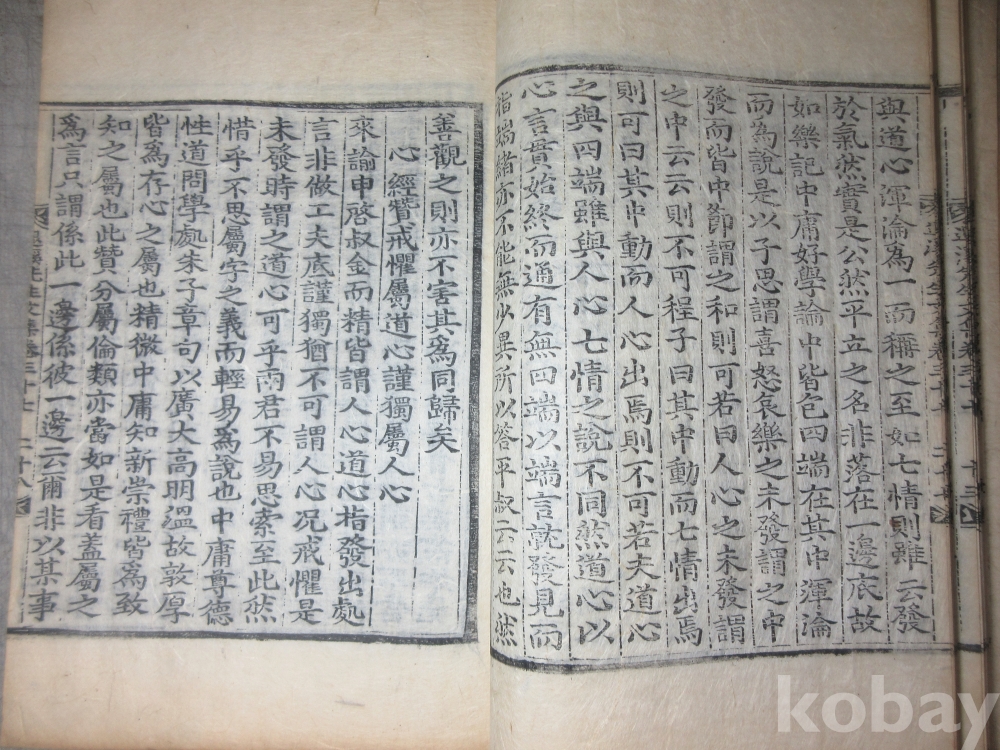 與道心渾淪爲一而稱之至如七情則雖云發
於氣然實是公然平立之名非落在一邊底故
如樂記中庸好學論中皆包四端在其中渾淪
而爲說是以子思謂喜怒哀樂之未發謂之中
發而皆中節謂之和則可若曰人心之未發謂
之中云云則不可程子曰其中動而七情出焉
則可曰其中動而人心出焉則不可若夫道心
之與四端雖與人心七情之說不同然道心以
心言貫始終而通有無四端以端言就發見而
指端緒亦不能無少異所以答平叔云云也然
善觀之則亦不害其爲同歸矣
心經贊戒懼屬道心謹獨屬人心
來諭申啓叔金而精皆謂人心道心指發出處
言非做工夫底謹獨猶不可謂人心況戒懼是
未發時謂之道心可乎兩君不易思索至此然
惜乎不思屬字之義而輕易爲說也中庸尊德
性道問學處朱子章句以廣大高明溫故敦厚
皆爲存心之屬也精微中庸知新崇禮皆爲致
知之屬也此贊分屬倫類亦當如是看蓋屬之
爲言只謂係此一邊係彼一邊云爾非以某事
退溪先生文集卷三十七 二十八
kobay